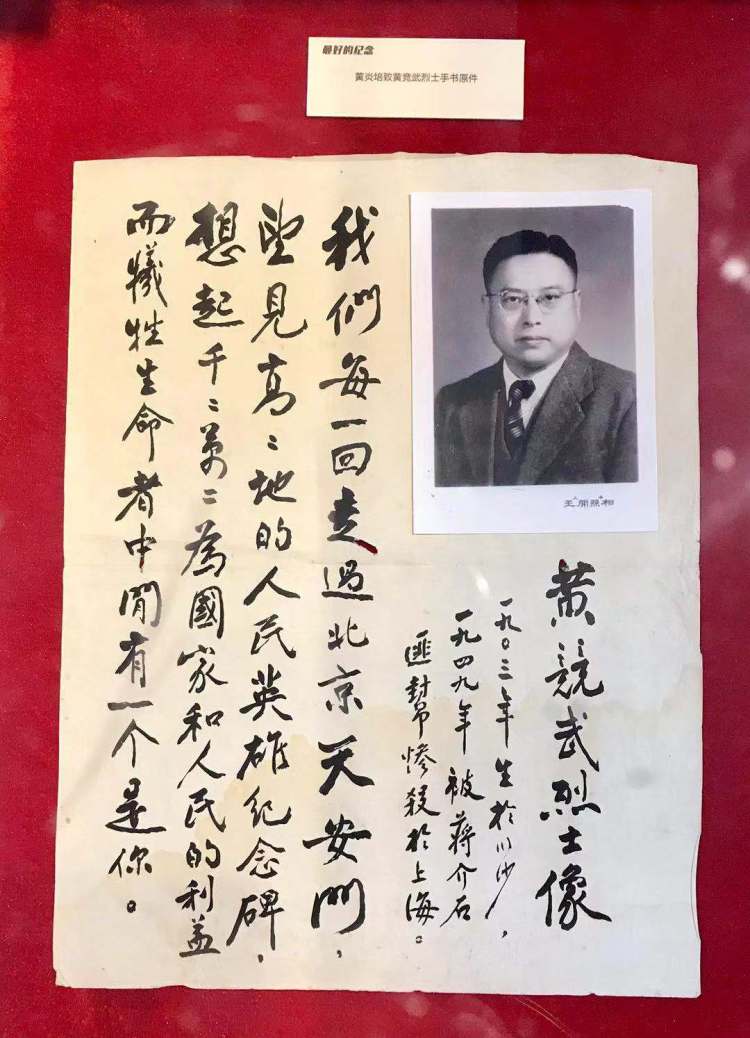 最好的纪念
黄炎培致黄竞武烈士手书原件
王開照相
黄競武烈士像
一九〇三年生於川沙，
一九四九年被蔣介石
匪幫惨殺於上海。
我們每一回走過北京天安門，
望見高〻地的人民英雄纪念碑，
想起千〻萬〻為國家和人民的利益
而犧牲生命者中間有一个是你。